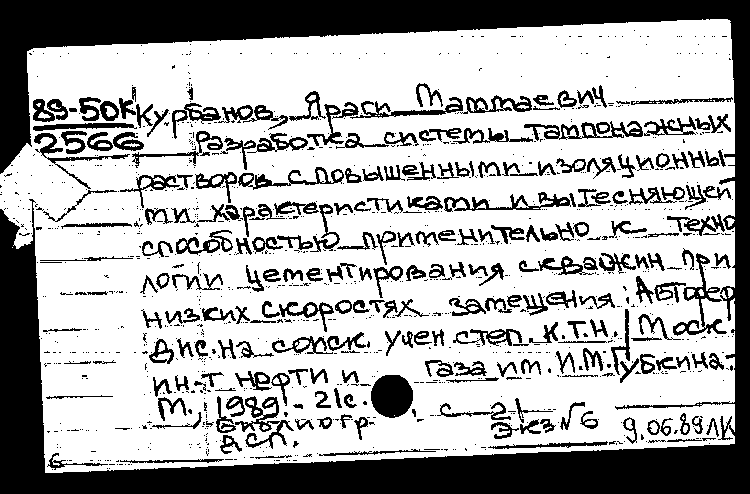 89-50К Курбанов, Яраги Маммаевич
2566 Разработка системы тампонажных
растворов с повышенными изоляционны-
ми характеристиками и вытесняющей
способностью применительно к техно
логии цементирования скважин при
низких скоростях замещения: Автореф
Дис. на соиск. учен. степ. к.т.н. / Моск.
ин-т нефти и газа им. И.М. Губкина.-
М., 1989.- 21с.
Библиогр.: с. 21
ДСП. Экз №6 9.06.89 ЛК
6